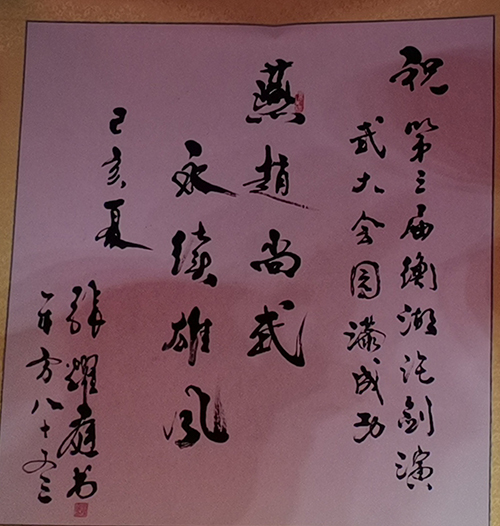 祝
第三届衡湖论剑演
武大会圆满成功
燕赵尚武
永续雄风
己亥夏
张耀庭书
年方八十又三